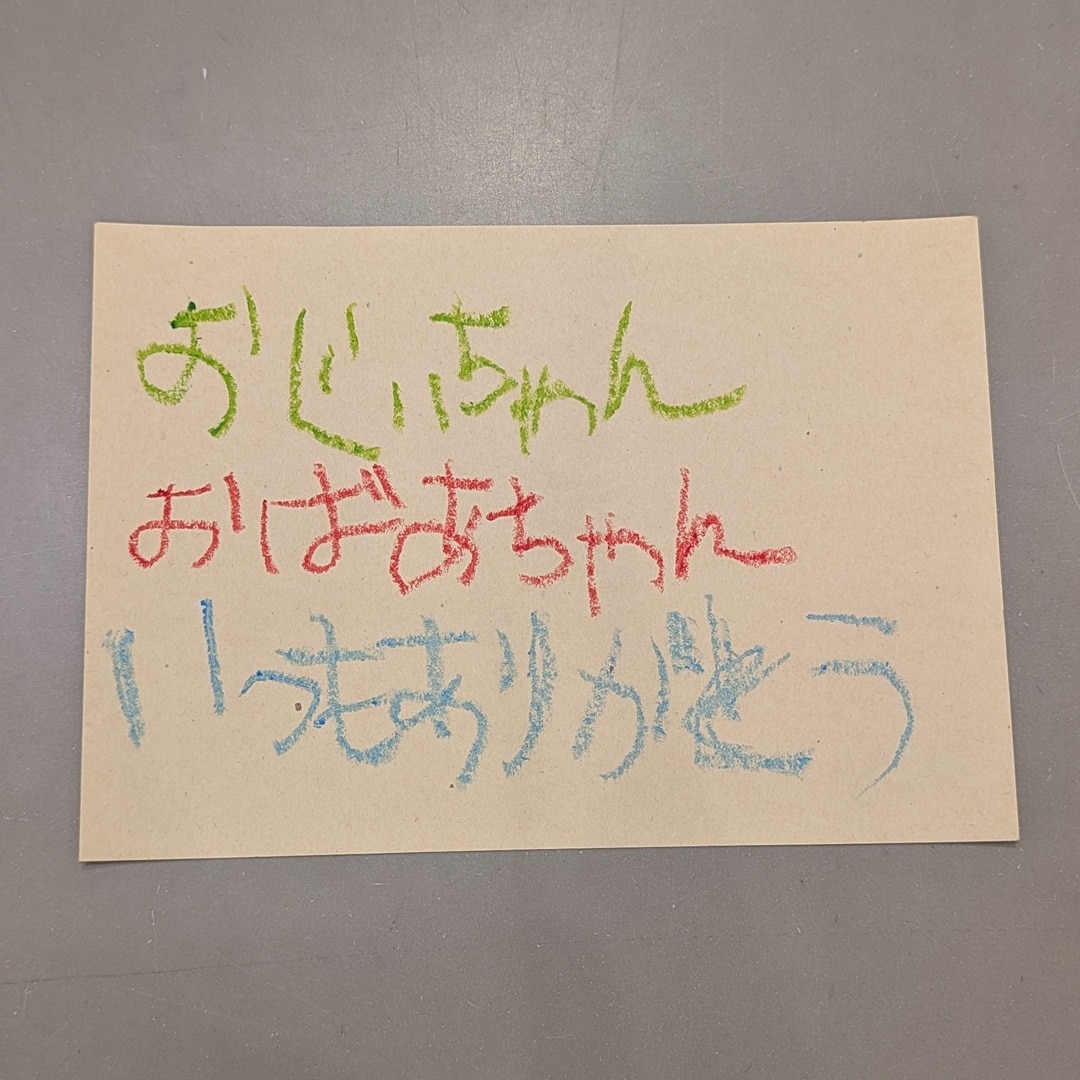 おじいちゃん
おばあちゃん
いつもありがとう